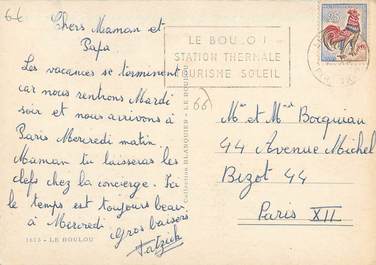 66
Chers Maman et
Papa
Les vacances se terminent
car nous rentrons Mardi
soir et nous arrivons à
Paris Mercredi matin.
Maman tu laisseras les
clefs chez la concierge. Ici
le temps est toujours beau
à Mercredi
Gros baisers
1613 - LE BOULOU
Collection BLANQUIER - LE BOULOU
LE BOULOU
STATION THERMALE
TOURISME SOLEIL
66
Mr et Mme Bocquiau
44 Avenue Michel
Bizot 44
Paris XII